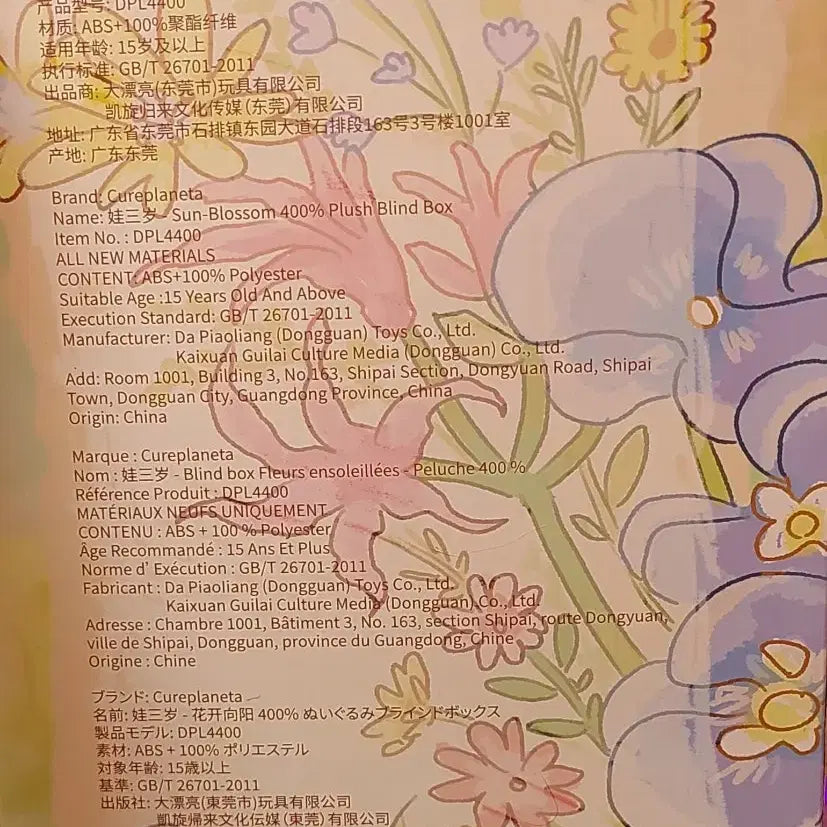 产品型号: DPL4400
材质: ABS+100%聚酯纤维
适用年龄: 15岁及以上
执行标准: GB/T 26701-2011
出品商: 大漂亮(东莞市)玩具有限公司
凯旋归来文化传媒（东莞）有限公司
地址: 广东省东莞市石排镇东园大道石排段163号3号楼1001室
产地: 广东东莞
Brand: Cureplaneta
Name: 娃三岁 - Sun-Blossom 400% Plush Blind Box
Item No. : DPL4400
ALL NEW MATERIALS
CONTENT: ABS+100% Polyester
Suitable Age :15 Years Old And Above
Execution Standard: GB/T 26701-2011
Manufacturer: Da Piaoliang (Dongguan) Toys Co., Ltd.
Kaixuan Guilai Culture Media (Dongguan) Co., Ltd.
Add: Room 1001, Building 3, No.163, Shipai Section, Dongyuan Road, Shipai
Town, Dongguan City, Guangdong Province, China
Origin: China
Marque : Cureplaneta
Nom : 娃三岁 - Blind box Fleurs ensoleillées - Peluche 400 %
Référence Produit : DPL4400
MATÉRIAUX NEUFS UNIQUEMENT
CONTENU : ABS + 100 % Polyester
Âge Recommandé : 15 Ans Et Plus
Norme d' Exécution : GB/T 26701-2011
Fabricant : Da Piaoliang (Dongguan) Toys Co., Ltd.
Kaixuan Guilai Culture Media (Dongguan) Co., Ltd.
Adresse : Chambre 1001, Bâtiment 3, No. 163, section Shipai, route Dongyuan,
ville de Shipai, Dongguan, province du Guangdong, Chine
Origine : Chine
ブランド: Cureplaneta
名前: 娃三岁 - 花开向阳 400% ぬいぐるみブラインドボックス
製品モデル: DPL4400
素材: ABS + 100% ポリエステル
対象年齢: 15歳以上
基準: GB/T 26701-2011
出版社: 大漂亮(東莞市)玩具有限公司
凱旋帰来文化伝媒（東莞）有限公司